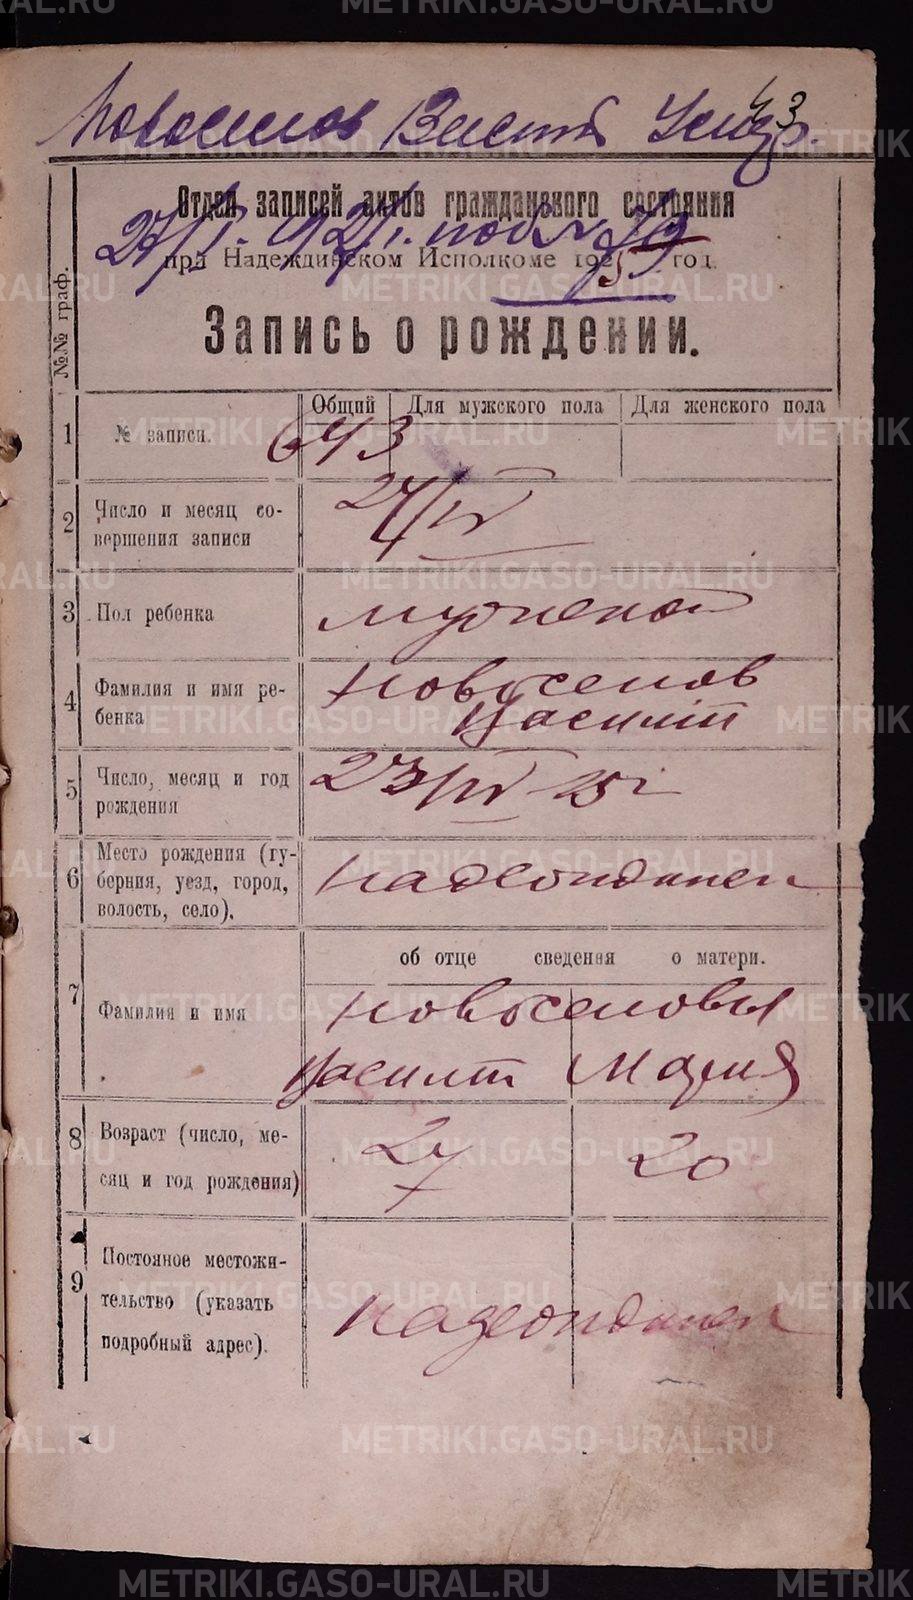 43
Новоселов Василий
Отдел записей актов гражданского состояния
при Надеждинском Исполкоме 1925 год.
Запись о рождении.
№№ граф.
Общий Для мужского пола Для женского пола
1 № записи. 643
2 Число и месяц со-
вершения записи 24/IV
3 Пол ребенка мужской
4 Фамилия и имя ре-
бенка Новоселов
Василий
5 Число, месяц и год
рождения 23/IV 25 г
6 Место рождения (гу-
берния, уезд, город,
волость, село). Надеждинск
об отце сведения о матери.
7 Фамилия и имя Новоселовы
Василий Мария
8 Возраст (число, ме-
сяц и год рождения) 27 20
9 Постояное местожи-
тельство (указать
подробный адрес). Надеждинск
METRIKI.GASO-URAL.RU